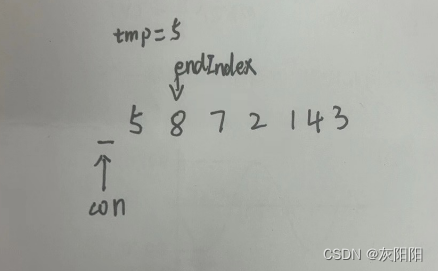 tmp=5
endIndex
_ 5 8 7 2 1 4 3
con
CSDN @灰阳阳